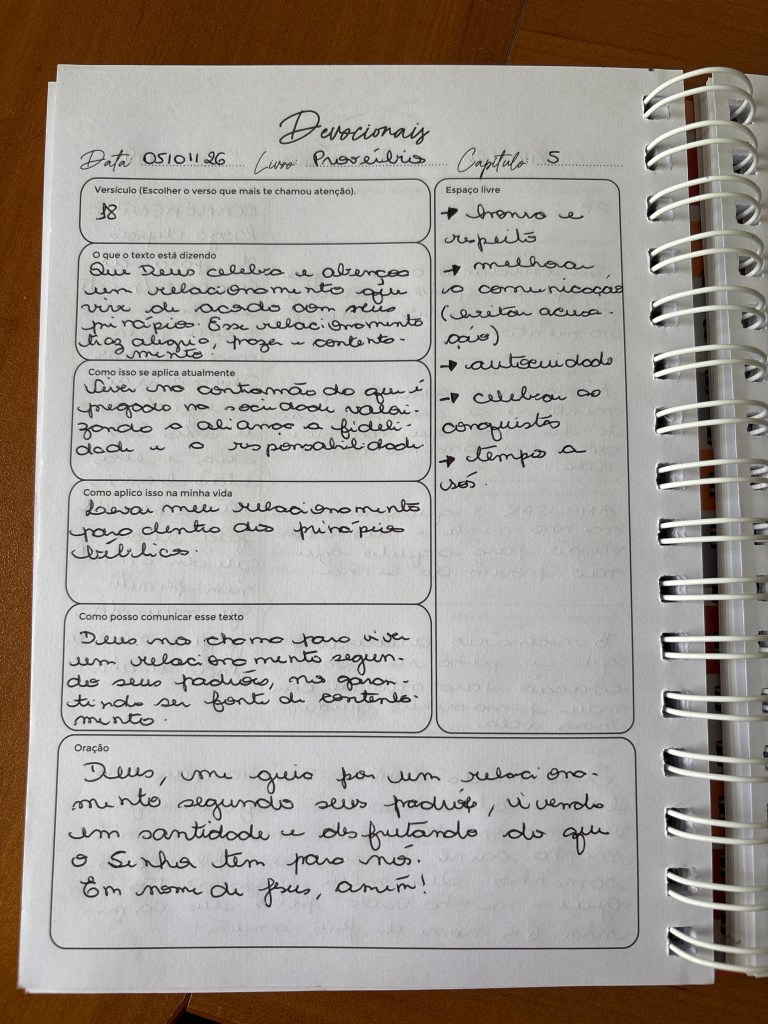 Devocionais
Data 05/01/26 Livro Provérbio Capítulo 5
Versículo (Escolher o verso que mais te chamou atenção).
18
O que o texto está dizendo
Que Deus celebra e abençoa
um relacionamento que
vive de acordo com seus
princípios. Esse relacionamento
traz alegria, prazer e contenta-
mento.
Como isso se aplica atualmente
Viver na contramão do que é
pregado na sociedade valori-
zando a aliança a fideli-
dade e a responsabilidade
Como aplico isso na minha vida
Levar meu relacionamento
para dentro dos princípios
bíblicos.
Como posso comunicar esse texto
Deus nos chama para viver
um relacionamento segun-
do seus padrões, nos garan-
tindo ser fonte de contenta-
mento.
Espaço livre
→ honra e
respeito
→ melhorar
a comunicação
(evitar acusa-
ção)
→ autocuidado
→ celebrar as
conquistas
→ tempo a
sós.
Oração
Deus, me guia por um relaciona-
mento segundo seus padrões, vivendo
em santidade e desfrutando do que
o Senhor tem para nós.
Em nome de Jesus, amém!